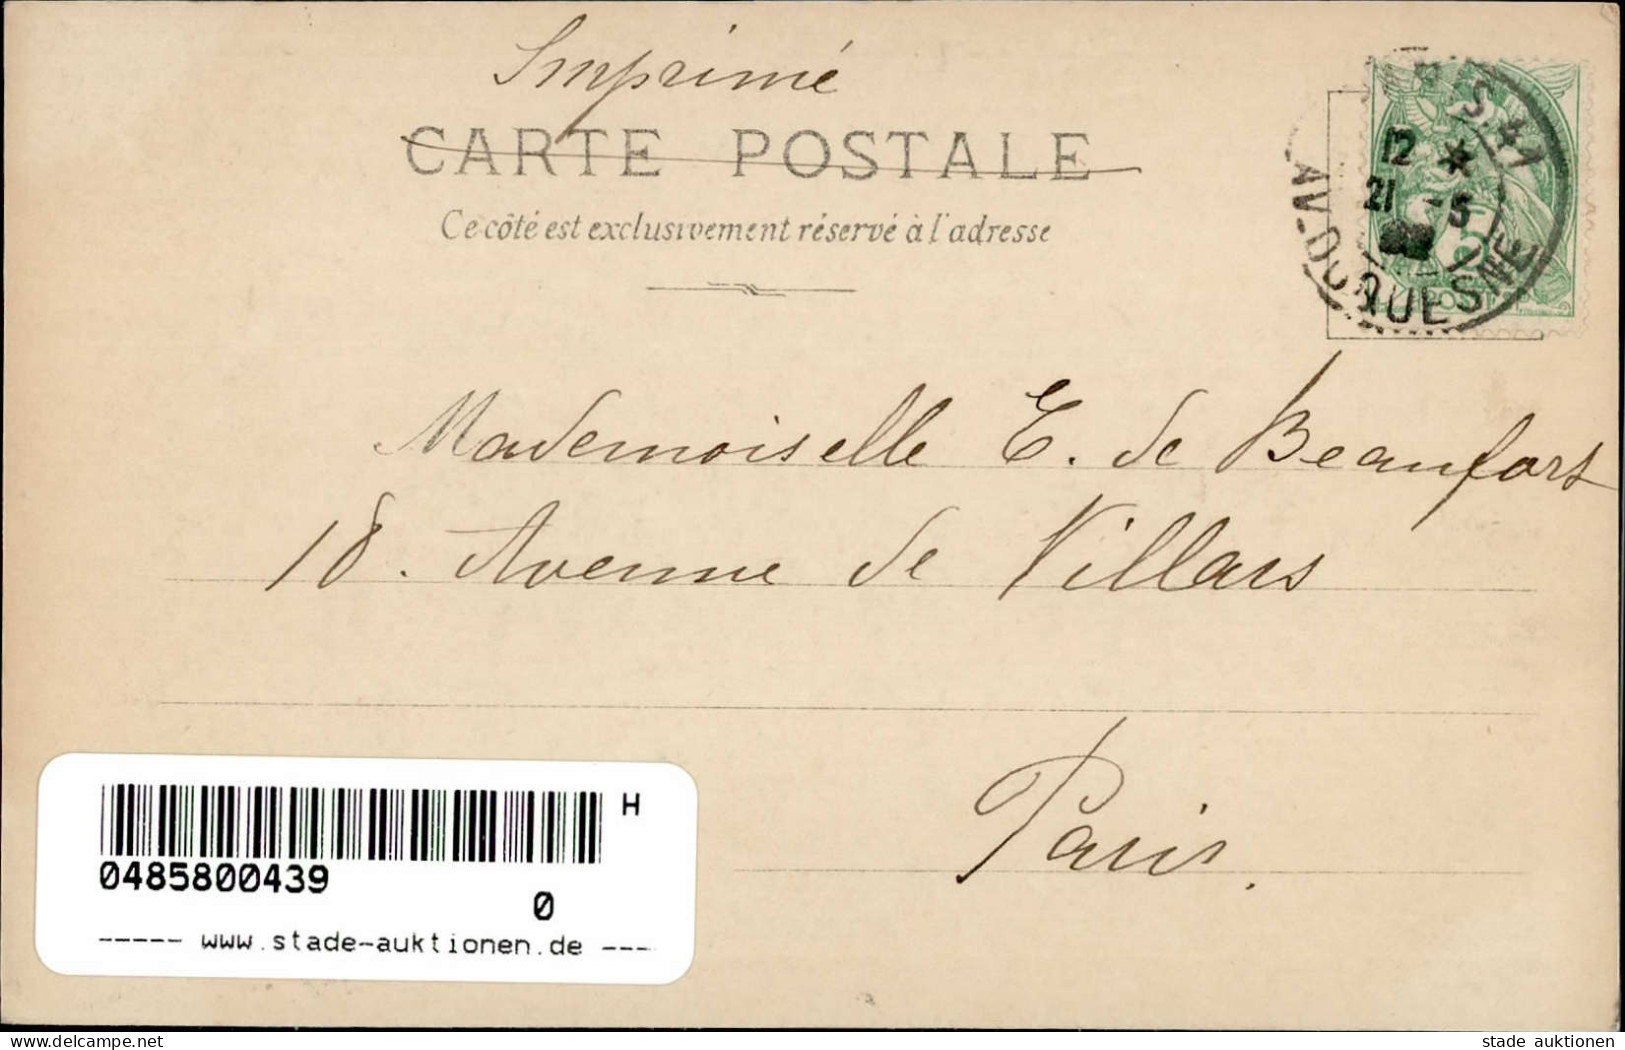 Imprimé
CARTE POSTALE
Ce côté est exclusivement réservé à l'adresse
S. 41
12 *
21 -5
AV. DUQUESNE
5
Mademoiselle E. de Beaufort
18. Avenue de Villars
Paris.
H
0485800439
0
----- www.stade-auktionen.de ----
stade auktionen